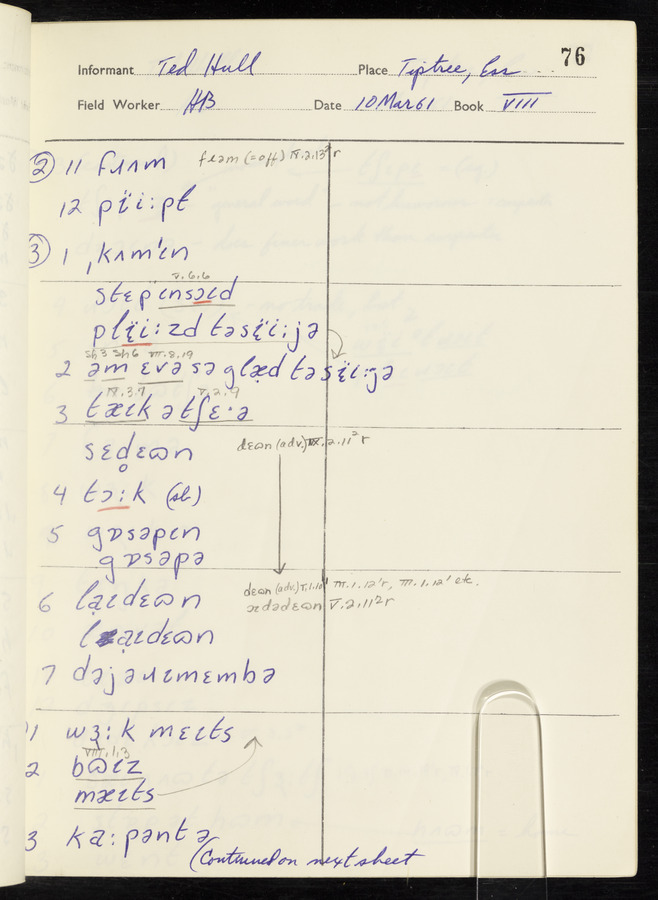 76
Informant Ted Hull Place Tiptree, Ess
Field Worker HB Date 10 Mar 61 Book VIII
② 11 fɹʌm fɹəm (=off) IX.2.13² r
12 pï̈i:pɫ
③ 1 ˌkʌm'ɪn
V.6.6
stɛpɪnsɔɪd
plï̈i:zd təsï̈i:jə
Sh3 Sh6 VII.8.19
2 əm ɛvə sə glæd təsï̈i:jə
IX.3.7 V.2.9
3 tæɪk ətʃɛ·ə
sɛd̥ɛɷn dɛɷn (adv.) IX.2.11² r
4 tɔ:k (sb.)
5 gɒsəpɪn
gɒsəpə
dɛɷn (adv.) V.1.10¹ III.1.12¹r, III.1.12¹ etc.
6 lạɪdɛɷn ʌdədɛɷn V.2.11² r
lạɪdɛɷn
7 dəjəɹɪmɛmbə
1 wɜ:k mɛɪts
VIII.1.3
2 bɷɪz
mæɪts
3 ka:pəntə
(Continued on next sheet